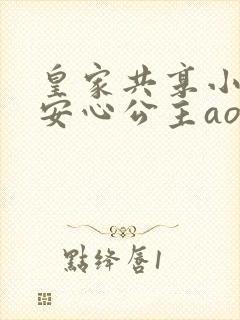 皇家共享小
安心公主ao
點绛唇1